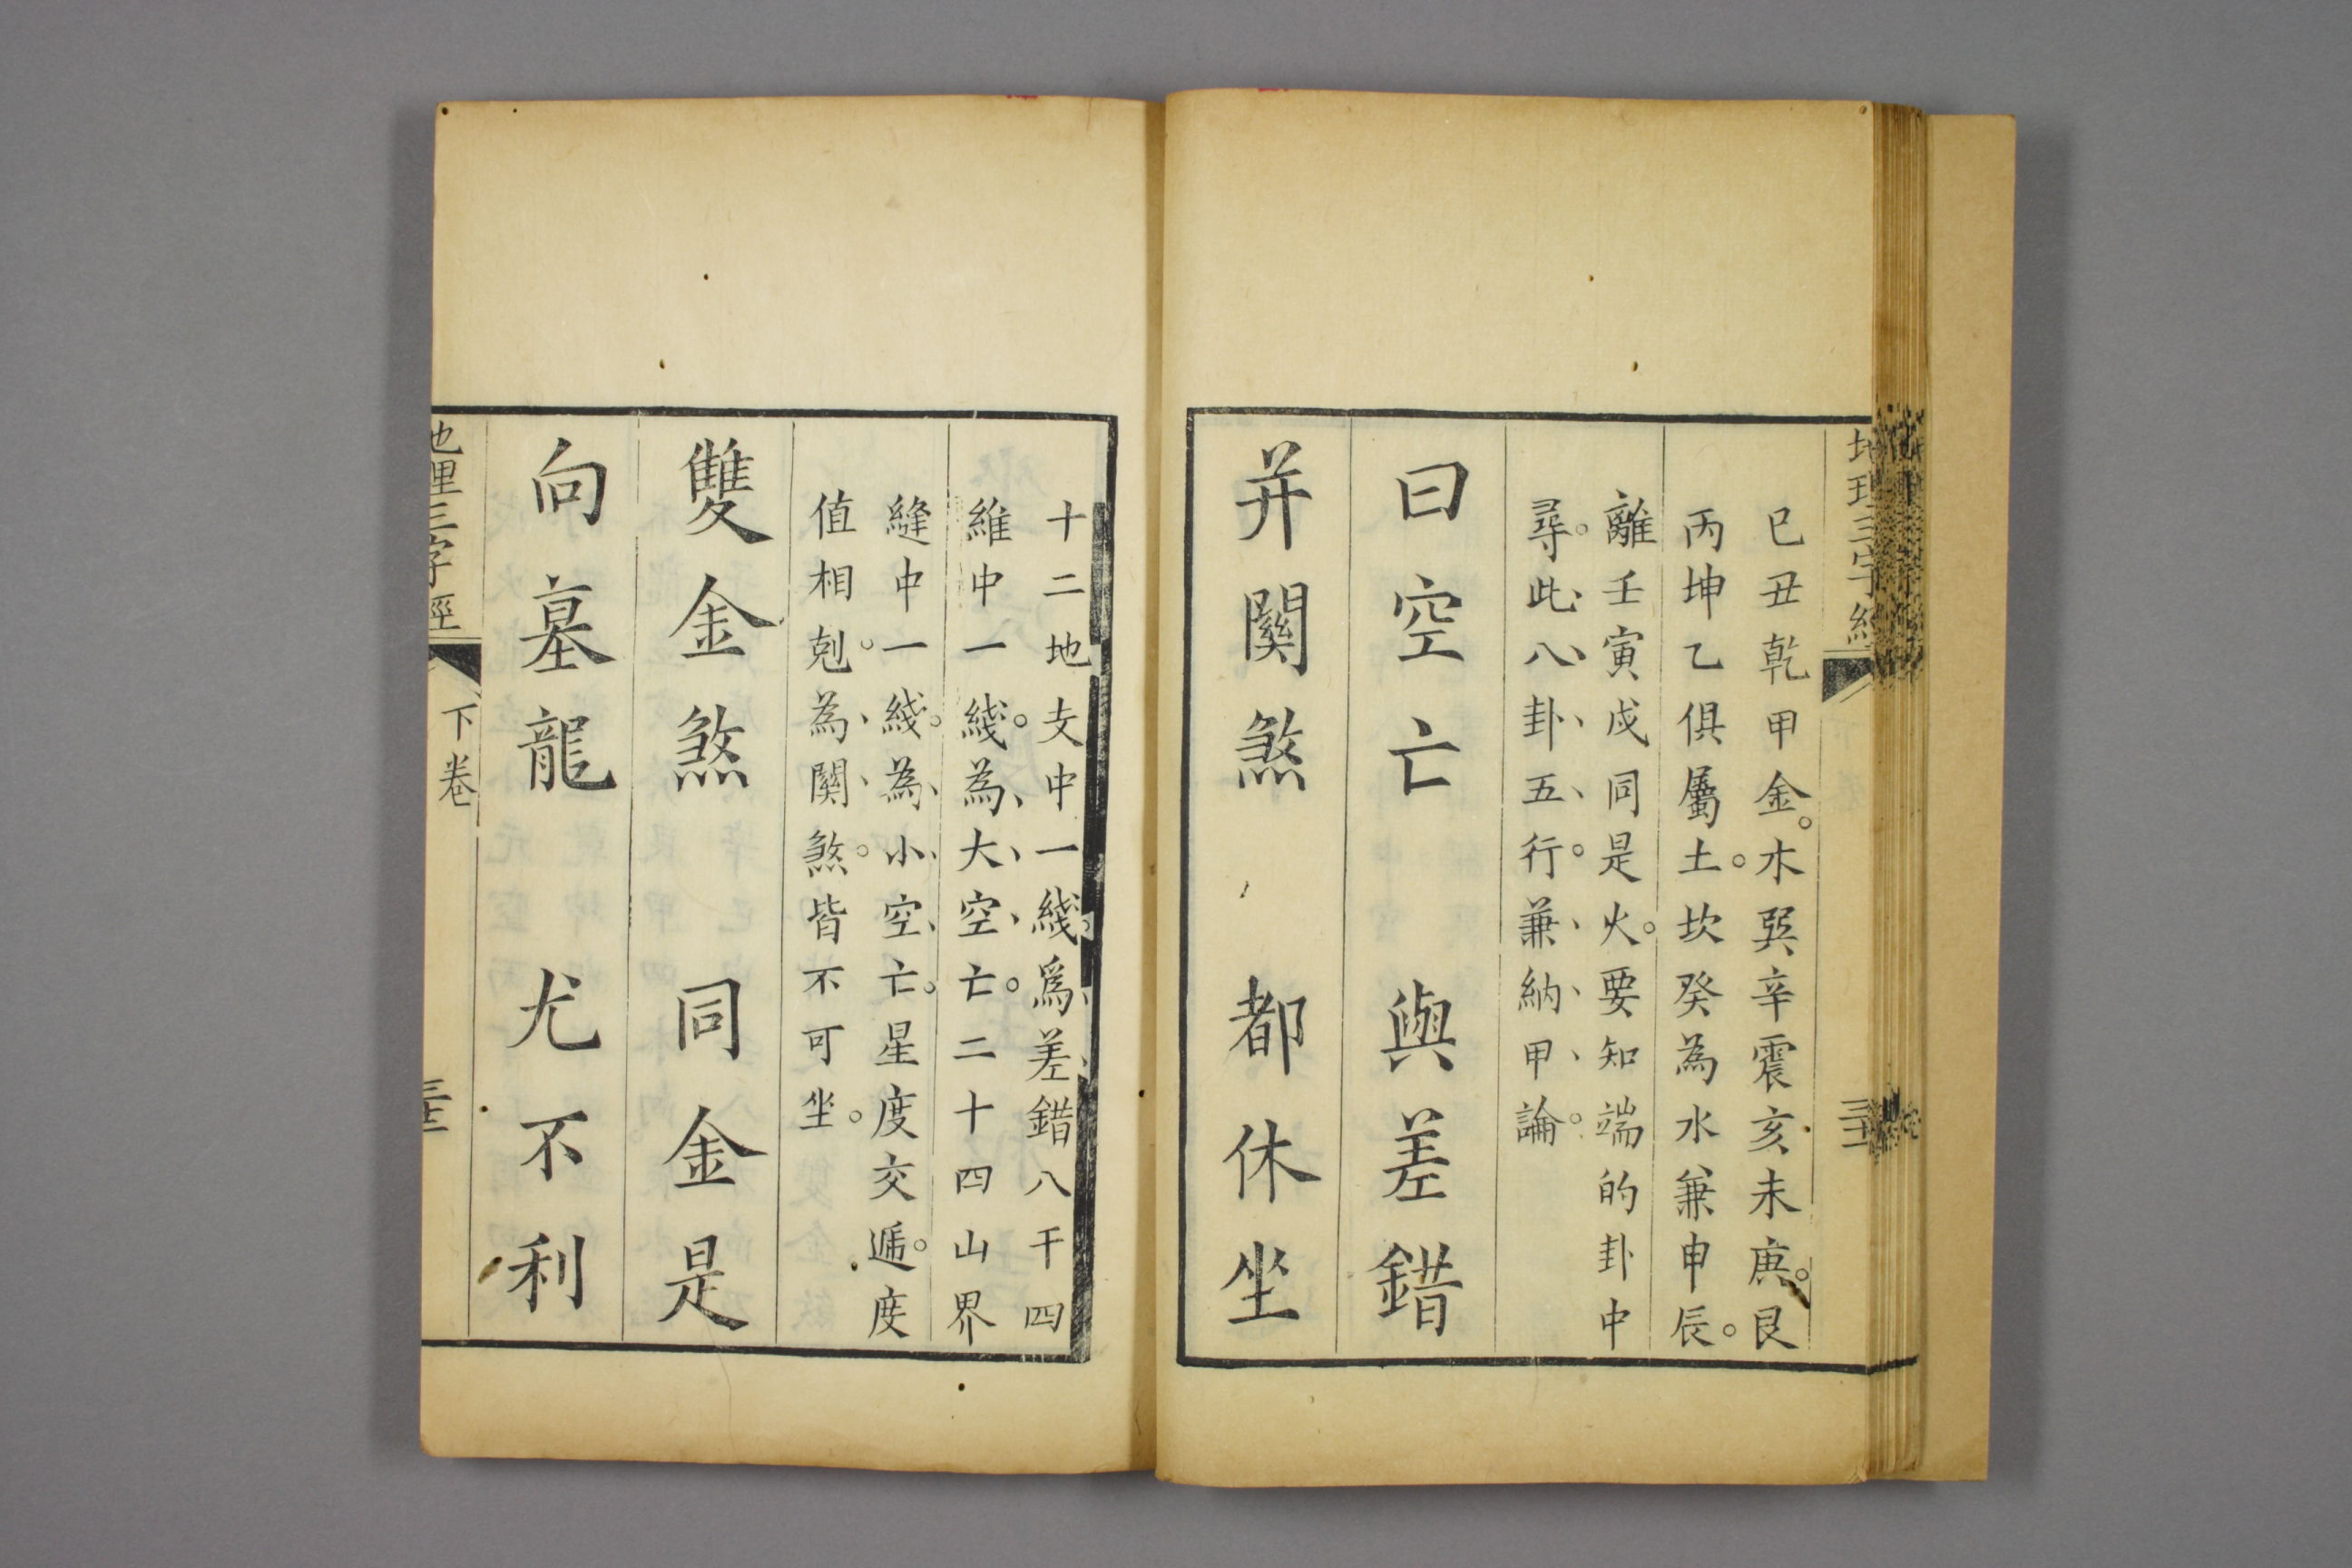 地理三字經
三十一
巳丑乾甲金。木巽辛震亥未庚。艮
丙坤乙俱屬土。坎癸為水兼申辰。
離壬寅戌同是火。要知端的卦中
尋。此、八、卦、五、行。兼、納、甲、論。
曰空亡 與差錯
并關煞 都休坐
十二地支中一綫。爲、差、錯八干四
維中一綫。為、大、空、亡。二十四山界
縫中一綫。為、小、空、亡。星度交遞。度
值相剋。為、關、煞。皆不可坐。
雙金煞 同金是
向墓龍 尤不利
地理三字經
下卷